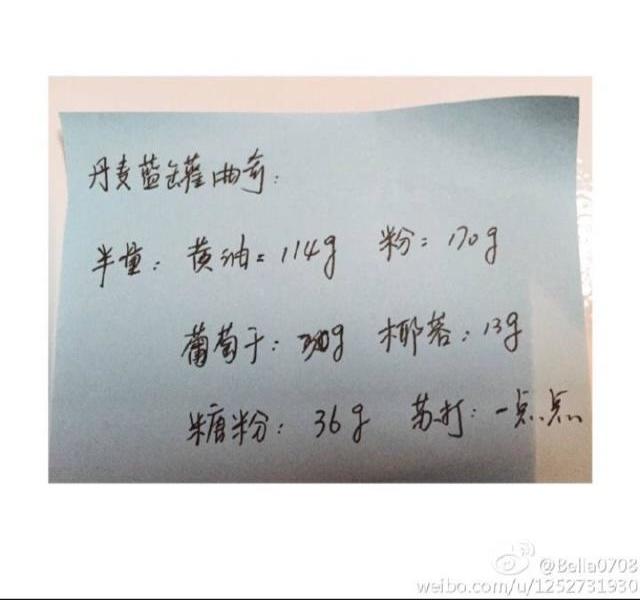 丹麦蓝罐曲奇:
半量: 黄油=114g 粉=170g
葡萄干: 椰蓉:13g
糖粉: 36g 苏打:一点点
@Bella0708
weibo.com/u/1252731930